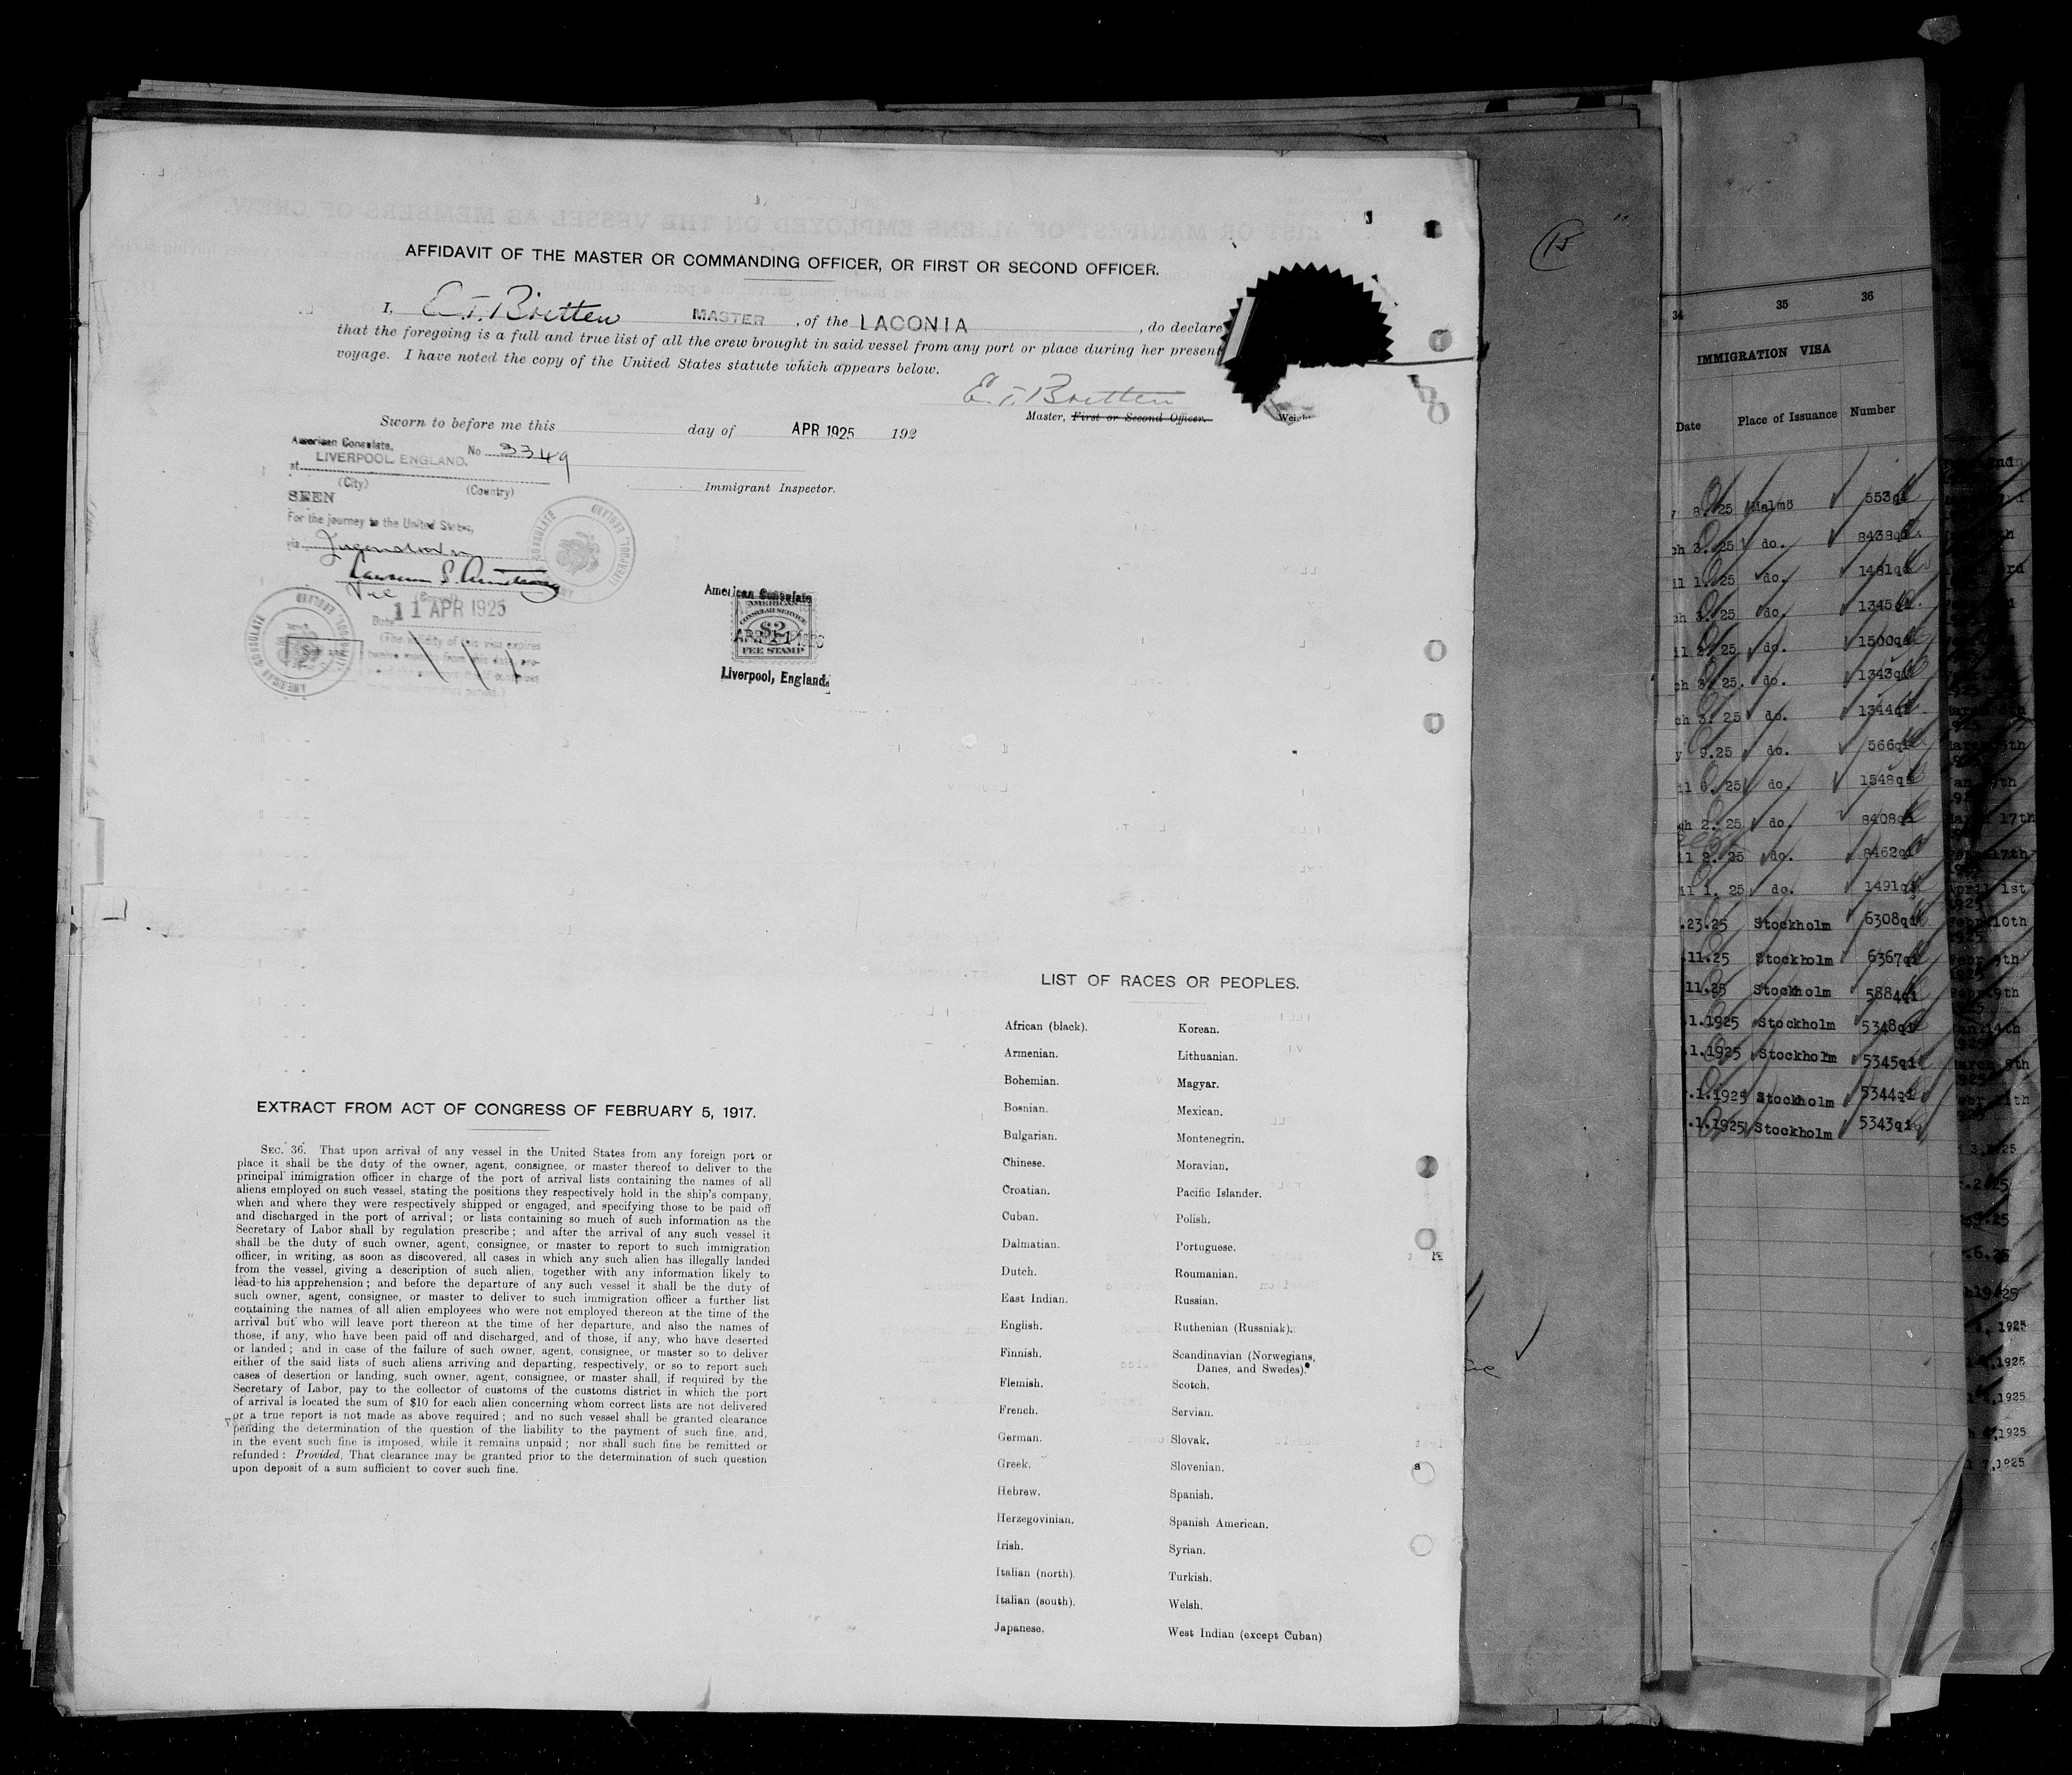 AFFIDAVIT OF THE MASTER OR COMMANDING OFFICER, OR FIRST OR SECOND OFFICER.
I, E. T. Britten MASTER, of the LACONIA, do declare
that the foregoing is a full and true list of all the crew brought in said vessel from any port or place during her present
voyage. I have noted the copy of the United States statute which appears below.
E. T. Britten
Master, First or Second Officer.
Sworn to before me this day of APR 1925 192
Immigrant Inspector.
American Consulate.
LIVERPOOL ENGLAND. No 3349
at
(City) (Country)
SEEN
For the journey to the United States,
via
11 APR 1925
Date
American Consulate
AMERICAN
CONSULAR SERVICE
$2
FEE STAMP
Liverpool, England.
LIST OF RACES OR PEOPLES.
African (black). Korean.
Armenian. Lithuanian.
Bohemian. Magyar.
Bosnian. Mexican.
Bulgarian. Montenegrin.
Chinese. Moravian.
Croatian. Pacific Islander.
Cuban. Polish.
Dalmatian. Portuguese.
Dutch. Roumanian.
East Indian. Russian.
English. Ruthenian (Russniak).
Finnish. Scandinavian (Norwegians,
Danes, and Swedes).
Flemish. Scotch.
French. Servian.
German. Slovak.
Greek. Slovenian.
Hebrew. Spanish.
Herzegovinian. Spanish American.
Irish. Syrian.
Italian (north). Turkish.
Italian (south). Welsh.
Japanese. West Indian (except Cuban)
EXTRACT FROM ACT OF CONGRESS OF FEBRUARY 5, 1917.
SEC. 36. That upon arrival of any vessel in the United States from any foreign port or
place it shall be the duty of the owner, agent, consignee, or master thereof to deliver to the
principal immigration officer in charge of the port of arrival lists containing the names of all
aliens employed on such vessel, stating the positions they respectively hold in the ship's company,
when and where they were respectively shipped or engaged, and specifying those to be paid off
and discharged in the port of arrival; or lists containing so much of such information as the
Secretary of Labor shall by regulation prescribe; and after the arrival of any such vessel it
shall be the duty of such owner, agent, consignee, or master to report to such immigration
officer, in writing, as soon as discovered, all cases in which any such alien has illegally landed
from the vessel, giving a description of such alien, together with any information likely to
lead to his apprehension; and before the departure of any such vessel it shall be the duty of
such owner, agent, consignee, or master to deliver to such immigration officer a further list
containing the names of all alien employees who were not employed thereon at the time of the
arrival but who will leave port thereon at the time of her departure, and also the names of
those, if any, who have been paid off and discharged, and of those, if any, who have deserted
or landed; and in case of the failure of such owner, agent, consignee, or master so to deliver
either of the said lists of such aliens arriving and departing, respectively, or so to report such
cases of desertion or landing, such owner, agent, consignee, or master shall, if required by the
Secretary of Labor, pay to the collector of customs of the customs district in which the port
of arrival is located the sum of $10 for each alien concerning whom correct lists are not delivered
or a true report is not made as above required; and no such vessel shall be granted clearance
pending the determination of the question of the liability to the payment of such fine, and,
in the event such fine is imposed, while it remains unpaid; nor shall such fine be remitted or
refunded: Provided, That clearance may be granted prior to the determination of such question
upon deposit of a sum sufficient to cover such fine.
34 35 36
IMMIGRATION VISA
Date Place of Issuance Number
8. 25 Malmö 553qi
3. 25 do. 8438qi
1. 25 do. 1481qi
3. 25 do. 1345qi
2. 25 do. 1500qi
3. 25. do. 1343qi
3. 25 do. 1344qi
9.25 do. 566qi
6. 25 do. 1548qi
2. 25 do. 8408qi
2. 25 do. 8462qi
1. 25 do. 1491qi
.23.25 Stockholm 6308qi
.11.25 Stockholm 6367qi
11.25 Stockholm 5884qi
.1.1925 Stockholm 5348qi
.1.1925 Stockholm 5345qi
.1.1925 Stockholm 5344qi
.1.1925 Stockholm 5343qi